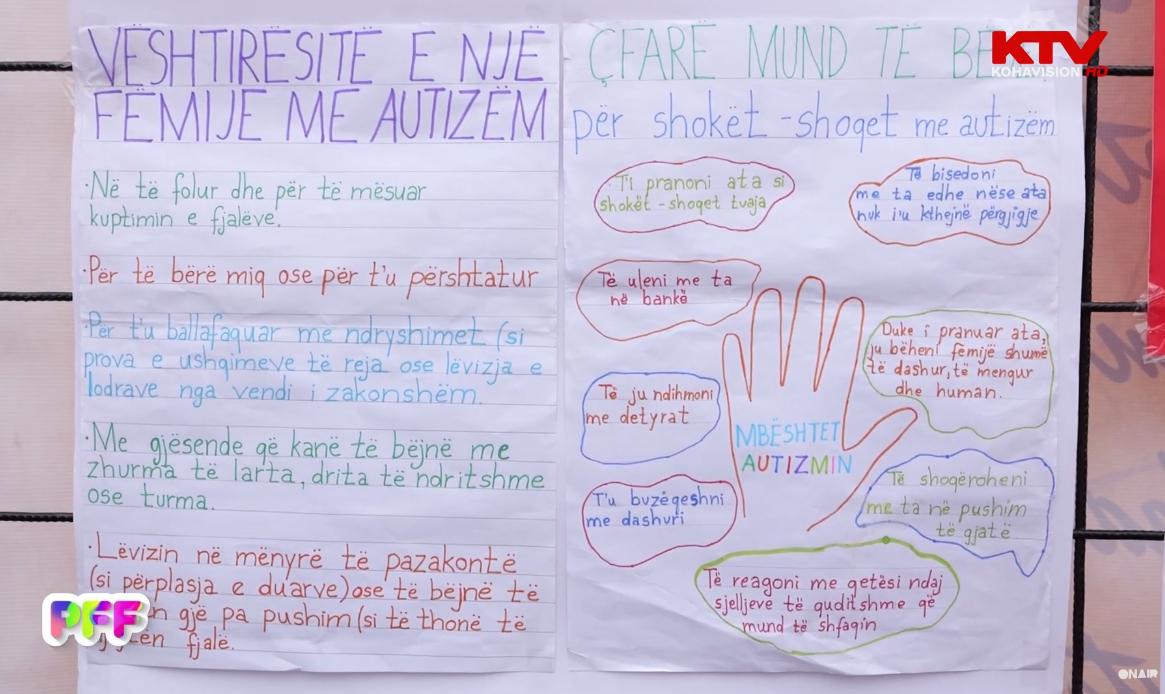 VËSHTIRËSITË E NJË
FËMIJE ME AUTIZËM
·Në të folur dhe për të mësuar
kuptimin e fjalëve.
·Për të bërë miq ose për t'u përshtatur
·Për t'u ballafaquar me ndryshimet (si
prova e ushqimeve të reja ose lëvizja e
lodrave nga vendi i zakonshëm.
·Me gjësende që kanë të bëjnë me
zhurma të larta, drita të ndritshme
ose turma.
·Lëvizin në mënyrë të pazakontë
(si përplasja e duarve) ose të bëjnë të
gjë pa pushim (si të thonë të
fjalë.
ÇFARË MUND TË
për shokët - shoqet me autizëm
T'i pranoni ata si
shokët - shoqet tuaja
Të bisedoni
me ta edhe nëse ata
nuk i'u kthejnë përgjigje
Të uleni me ta
në bankë
Duke i pranuar ata,
ju bëheni fëmijë shumë
të dashur, të mençur
dhe human.
Të ju ndihmoni
me detyrat
MBËSHTET
AUTIZMIN
Të shoqëroheni
me ta në pushim
të gjatë
T'u buzëqeshni
me dashuri
Të reagoni me qetësi ndaj
sjelljeve të çuditshme që
mund të shfaqin
KTV
KOHAVISION HD
PFF
ONAIR